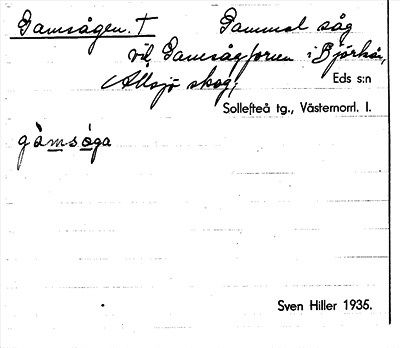 Gamsågen. † Gammal såg
vid Gamsågforsen i Björkån,
Allsjö skog;
Eds s:n
Sollefteå tg., Västernorrl. l.
gàmsåga
Sven Hiller 1935.